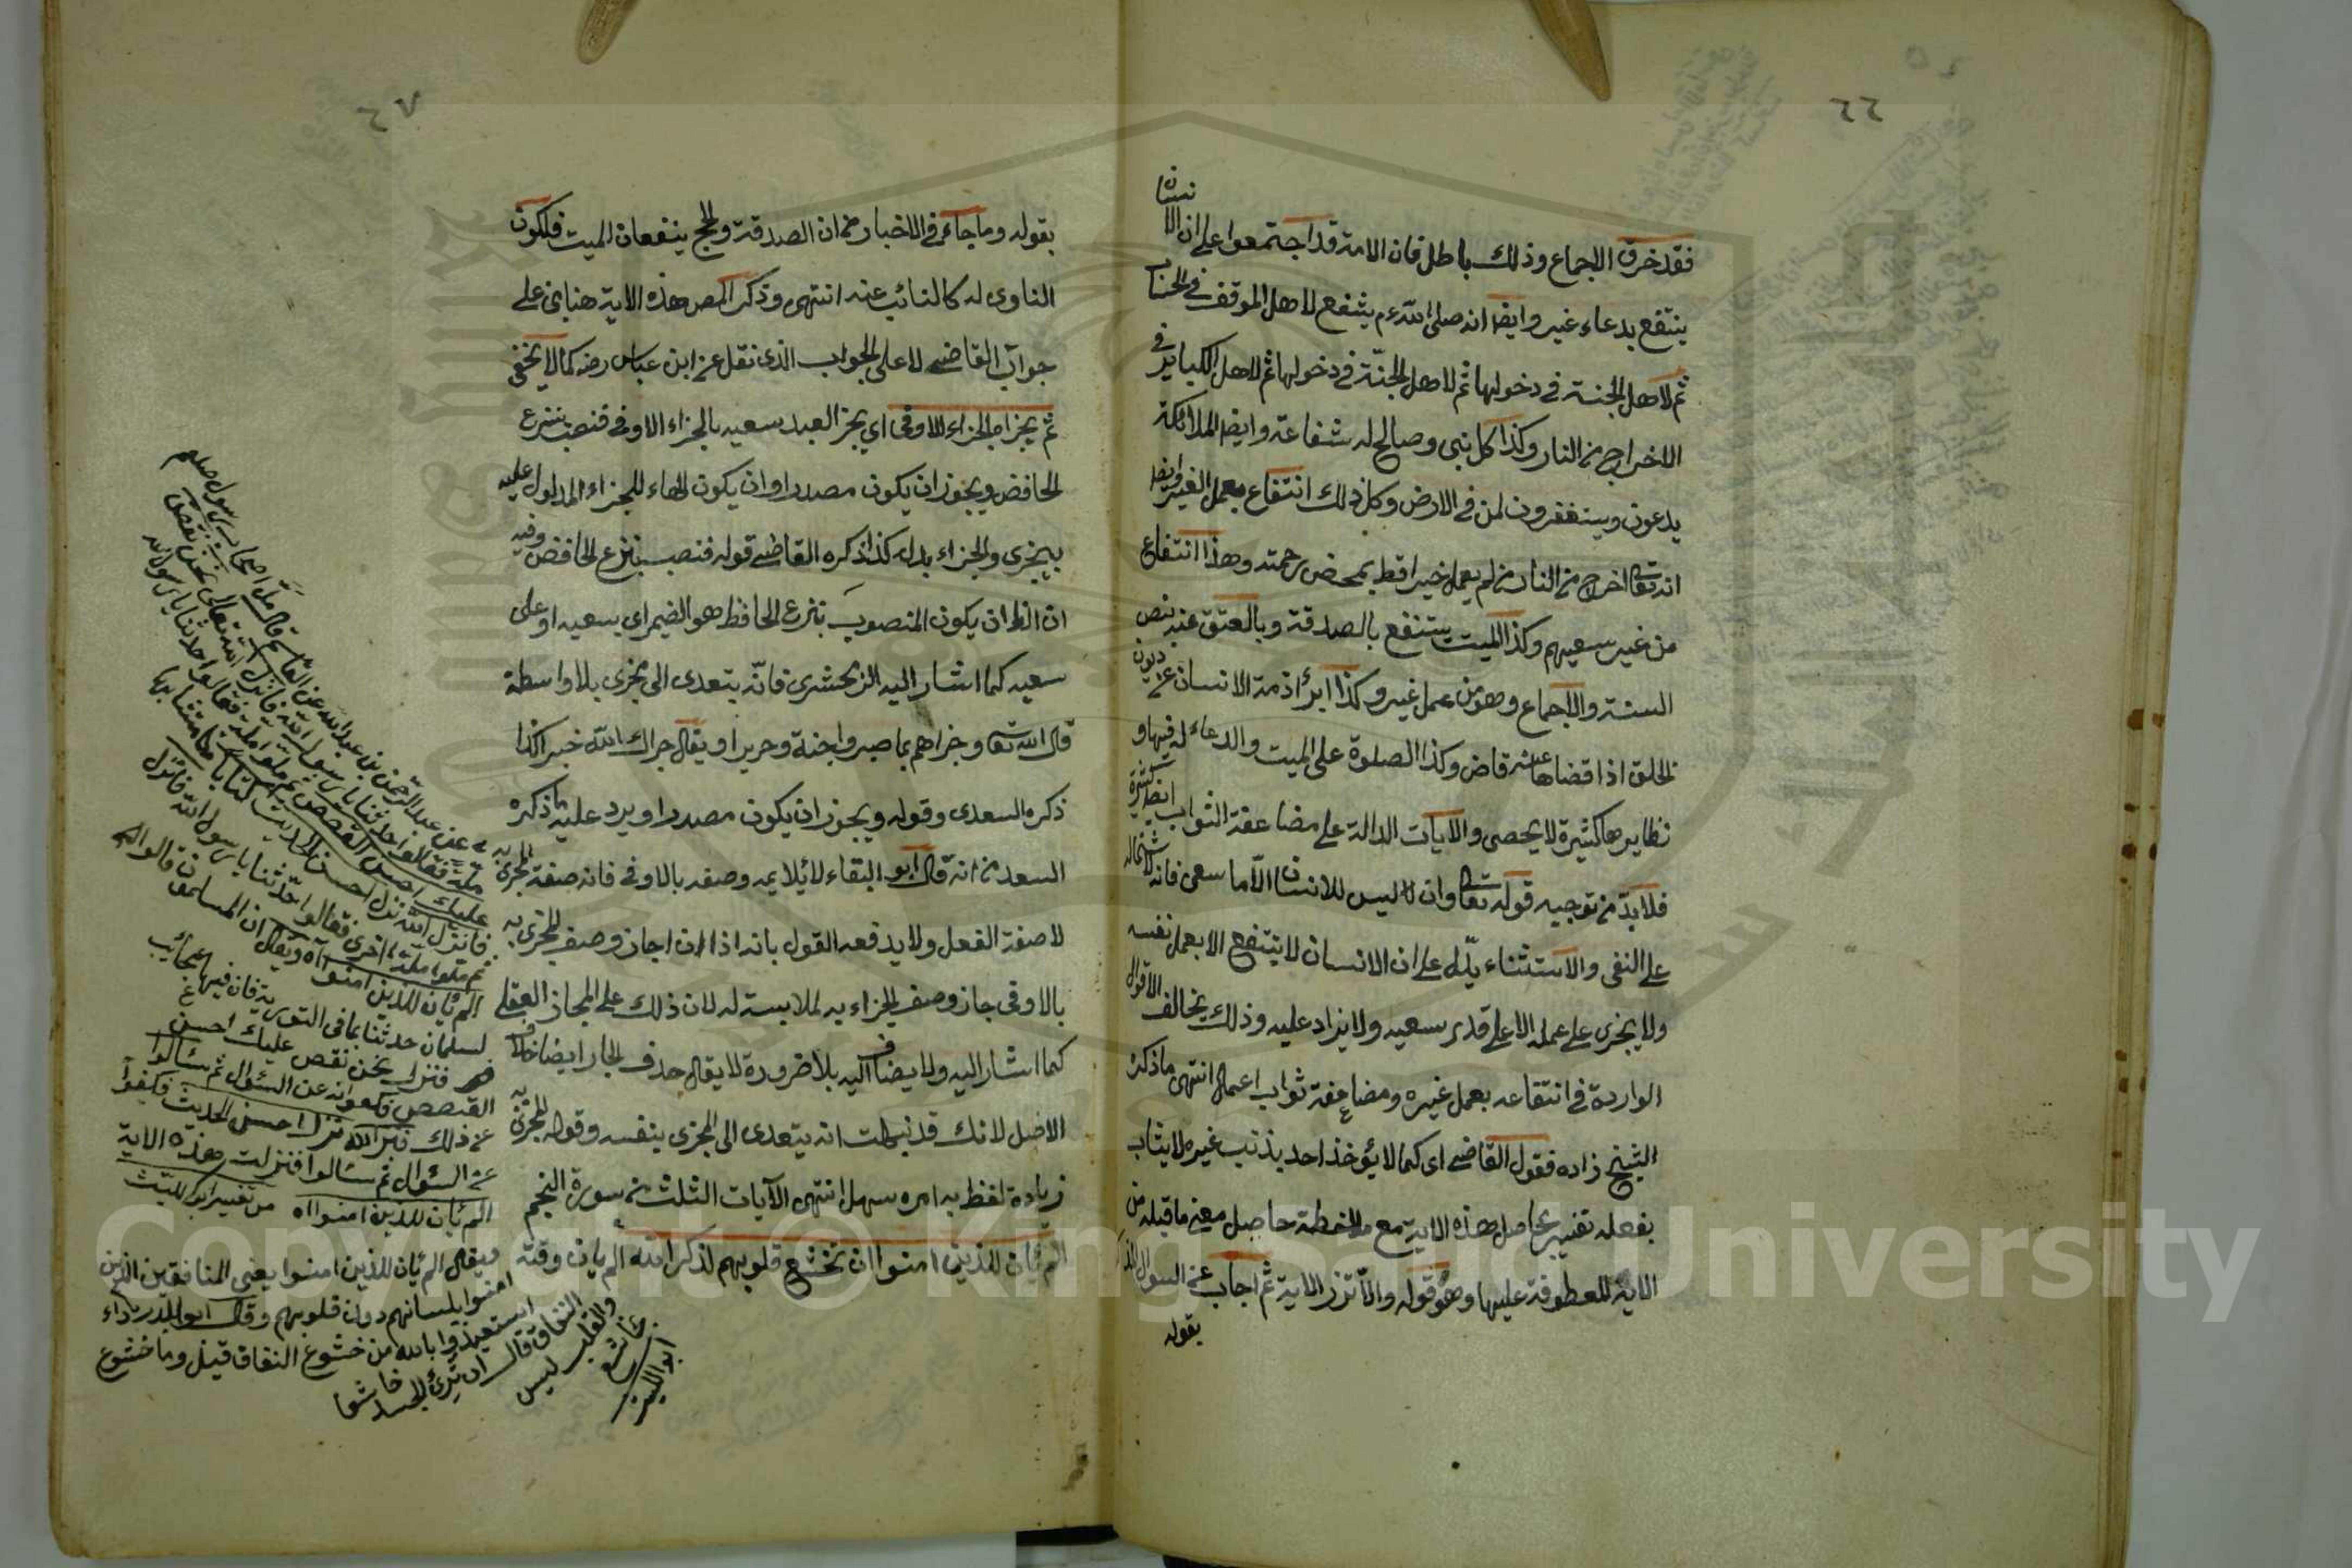 ٦٦
فقد خرق الاجماع وذلك باطل فان الامة قد اجتمعوا على ان الانسان
ينتفع بدعاء غيره وايضا انه صلى الله عم يشفع لاهل الموقف في الحساب
ثم لاهل الجنة في دخولها ثم لاهل الجنّة في دخولها ثم لاهل الكبائر في
الاخراج من النار وكذا كل نبى وصالح له شفاعة وايضا الملائكة
يدعون ويستغفرون لمن في الارض وكل ذلك انتفاع بعمل الغير وايضا
انه تعا اخرج من النار من لم يعمل خيرا قط بمحض رحمته وهذا انتفاع
من غير سعيهم وكذا الميت ينتفع بالصدقة وبالعتق عنه بنص
السنة والاجماع وهو من عمل غيره وكذا ابرأ ذمة الانسان عن ديون
الخلق اذا قضاها عنه قاض وكذا الصلوة على الميت والدعاء له فيها و
نظايرها كثيرة لا يحصى والآيات الدالة على مضاعفة الثواب ايضا كثيرة
فلا بدّ من توجيه قوله تعا وان ليس للانسان الّا ما سعى فانه لاشتماله
على النفى والاستثناء يدّل على ان الانسان لا ينتفع الا بعمل نفسه
ولا يجزى على عمله الا على قدر سعيه ولا يزاد عليه وذلك يخالف الاقوال
الواردة في انتفاعه بعمل غيره ومضاعفة ثواب اعماله انتهى ما ذكره
الشيخ زاده فقول القاضى اى كما لا يؤخذ احد بذنب غيره لا يثاب
بفعله تفسير بحاصل هذه الاية مع ملاخظة حاصل معنى ما قبله من
الاية المعطوفة عليها وهو قوله والّا تزر الاية ثم اجاب عن السوال
بقوله
٦٧
بقوله وما جاء في الاخبار من ان الصدقة والحج ينفعان الميت فلكون
الناوى له كالنائب عنه انتهى وذكر المص هذه الاية هنا بنى على
جواب القاضى لا على الجواب الذى نقل عن ابن عباس رضه كما لا يخفى
ثم يجزاه الجزاء الاوفى اي يجز العبد سعيه بالجزاء الاوفى فنصب بنزع
الخافض ويجوز ان يكون مصدرا وان يكون الهاء للجزاء المدلول عليه
بيجزى والجزاء بدله كذا ذكره القاضى قوله فنصب بنزع الخافض وفيه
ان الظ ان يكون المنصوب بنزع الخافظ هو الضمير اى بسعيه او على
سعيه كما اشار اليه الزمحشرى فانّه يتعدى الى يجزى بلا واسطة
قال الله تعا وجزاهم بما صبروا جنة وحريرا ويقال جزاك الله خيرا كذا
ذكره السعدى وقوله ويجوز ان يكون مصدرا ويرد عليه ما ذكره
السعد من انه قال ابو البقاء لا يلايمه وصفه بالاوفى فانه صفة المجزى به
لا صفة الفعل ولا يدفعه القول بانه اذا ان اجاز وصف المجزى به
بالاوفى جاز وصف الجزاء به لملابسة له لان ذلك على المجاز العقلى
كما اشار اليه ولا يضاف اليه بلا ضرورة لا يقال حذف الجار ايضا خلاف
الاصل لانك قد نبهت انه يتعدى الى المجزى بنفسه وقوله المجزى به
زيادة لفظ به امره سهل انتهى الآيات الثلث من سورة النجم
الم يأن للذين امنوا ان تخشع قلوبهم لذكر الله الم يات وقته
عن عبد الرحمن بن عبد الله عن القاسم قال ملّ اصحاب رسول صلعم
ملة فقالوا حدثنا يا رسول الله فانزل الله تعالى نحن نقص
عليك احسن القصص ثم ملوا ملة فقالوا حدثنا يا رسول الله
فانزل الله نزل احسن الحديث كتابا متشابها
ثم ملوا ملة اخرى فقالوا حدّثنا يا رسول الله فانزل
الم يأن للذين امنوا اه ويقال ان المسلمون قالوا
لسلمان حدثنا بما في التورية فان فيها عجائب
فنزل نحن نقص عليك احسن
القصص فكفوا عن السؤال ثم سألوا
عن ذلك فنزل الله نزل احسن الحديث فكفوا
عن السؤال ثم سألوا فنزلت هذه الاية
الم يأن للذين امنوا اه من تفسير ابو الليث
ويقال الم يأن للذين امنوا يعنى المنافقين الذين
امنوا بلسانهم دون قلوبهم وقال ابو الدرداء
استعيذوا بالله من خشوع النفاق قيل وما خشوع
النفاق قال ان ترى الجسد خاشعا
والقلب ليس
بخاشع
ابو الليث
Copyright © King Saud University